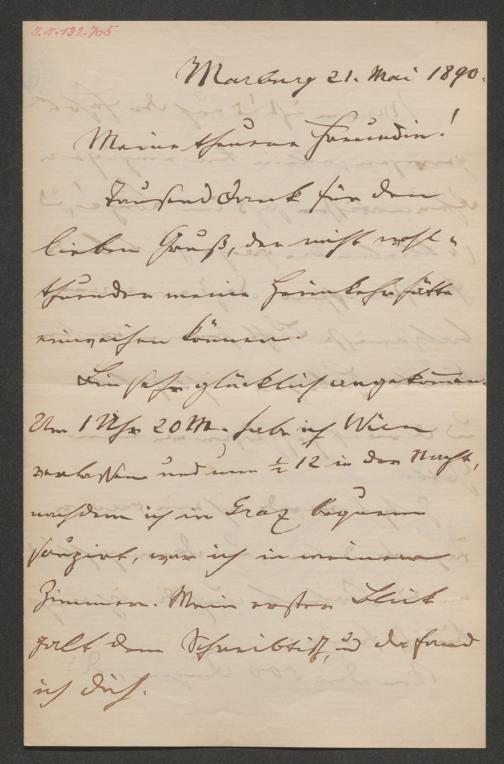 I.N. 192.705
Marburg 21. Mai 1890.
Meine theuerste Freundin!
Tausend Dank für den
lieben Gruß, der nicht wohl-
thuender meine Heimkehr hätte
einweihen können.
Bin sehr glücklich angekommen.
Um 1 Uhr 20 M. habe ich Wien
verlassen und um ½ 12 in der Nacht,
nachdem ich in Graz bequem
soupirt, war ich in meinem
Zimmer. Mein erster Blick
galt dem Schreibtisch, und da fand
ich dich.